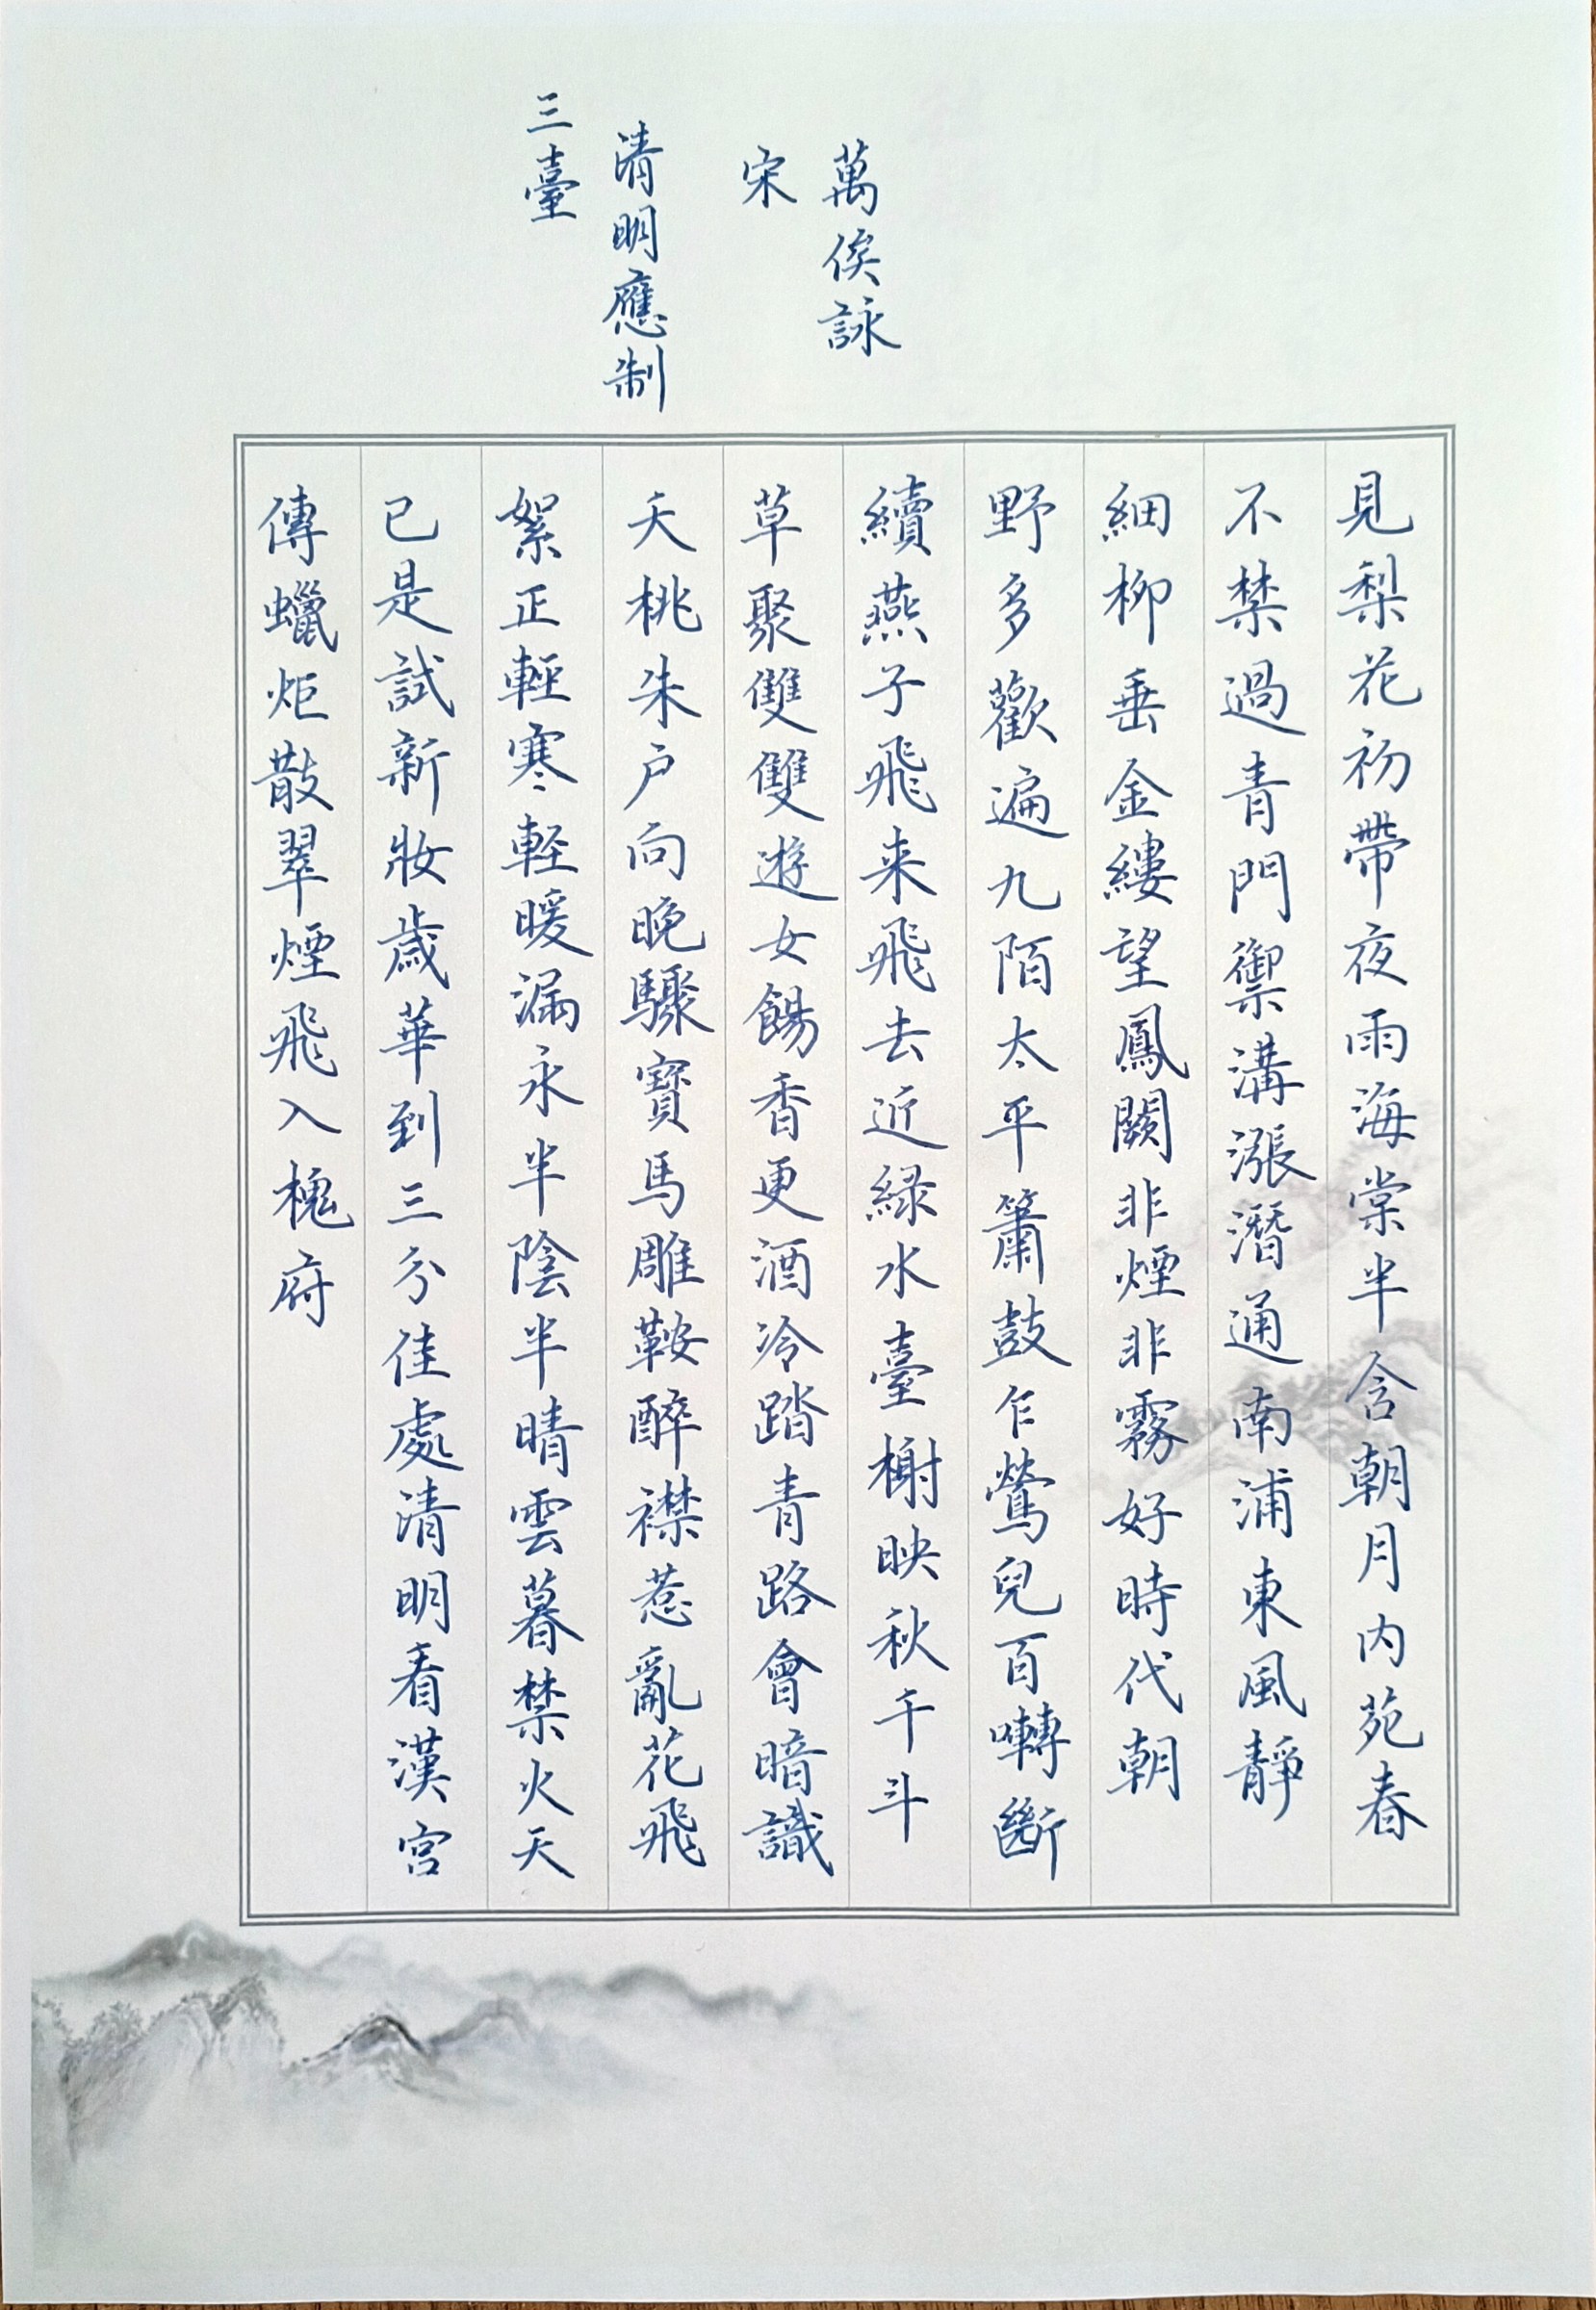 萬俟詠
宋
清明應制
三臺
見梨花初帶夜雨海棠半含朝月内苑春
不禁過青門禦溝漲潛通南浦東風靜
細柳垂金縷望鳳闕非煙非霧好時代朝
野多歡遍九陌太平簫鼓乍鶯兒百囀斷
續燕子飛来飛去近緑水臺榭映秋千斗
草聚雙雙遊女餳香更酒冷踏青路會暗識
夭桃朱戶向晚驟寶馬雕鞍醉襟惹亂花飛
絮正輕寒輕暖漏永半陰半晴雲暮禁火天
已是試新妝歲華到三分佳處清明看漢宮
傳蠟炬散翠煙飛入槐府